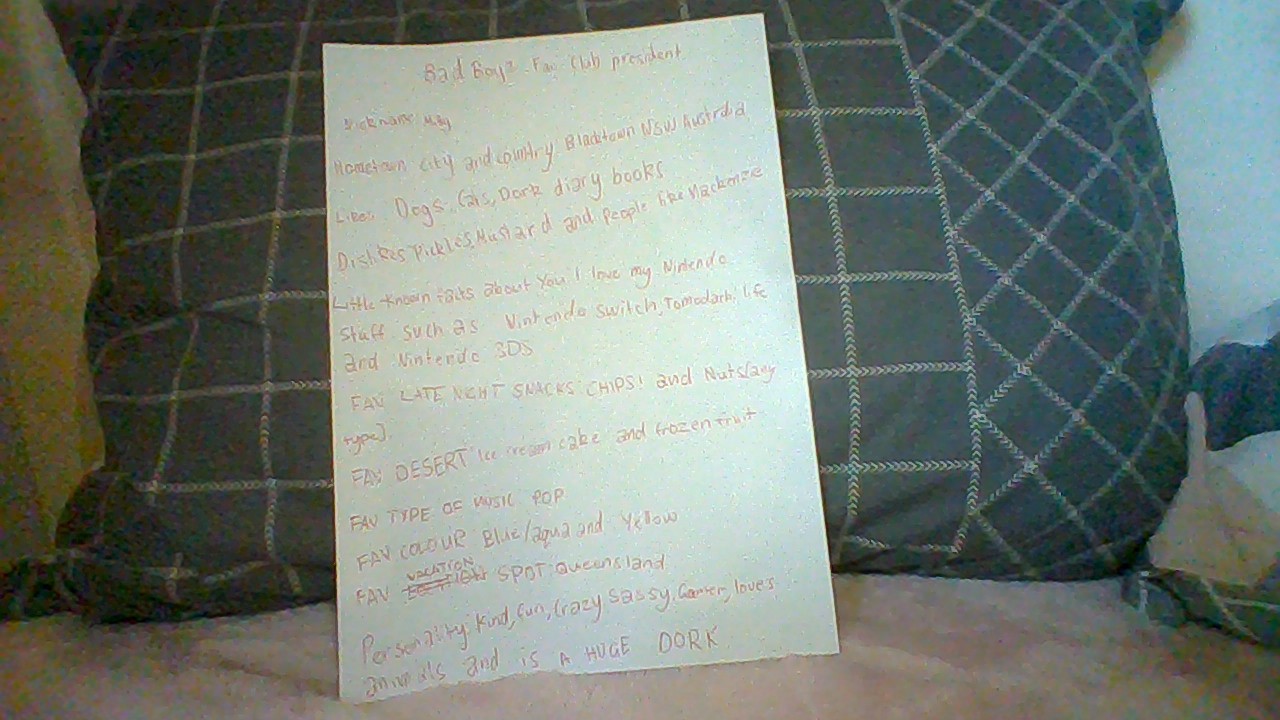 Bad Boyz Fan Club president
Nickname Meg
Hometown city and country Blacktown NSW Australia
Likes: Dogs, Cats, Dork diary books
Dislikes Pickles, Mustard and People like Mackenzie
Little known facts about You I love my Nintendo
stuff such as Nintendo switch, Tomodachi life
and Nintendo 3DS
FAV LATE NIGHT SNACKS CHIPS! and Nuts[any
type].
FAV DESERT Ice cream cake and frozen fruit
FAV TYPE OF MUSIC POP
FAV COLOUR Blue/aqua and Yellow
FAV VACATION SPOT: Queensland
Personality: Kind, fun, Crazy Sassy, Gamer, loves
animals and is A HUGE DORK